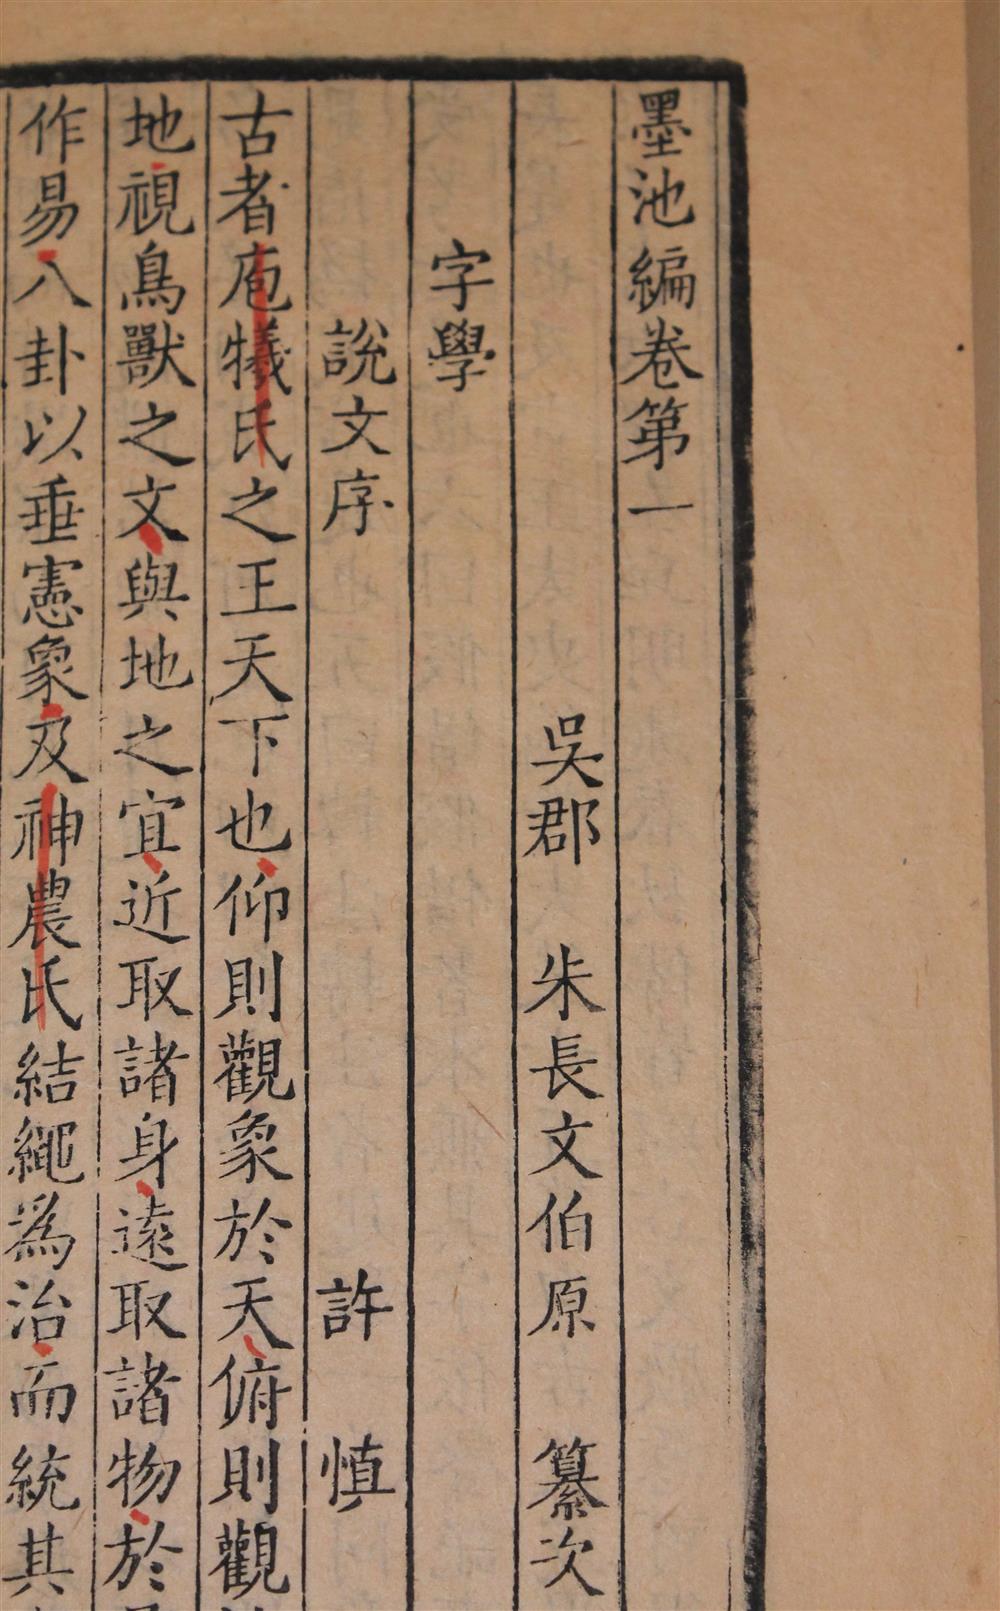 墨池編卷第一
吳郡 朱長文伯原 纂次
字學
說文序 許 慎
古者庖犧氏之王天下也仰則觀象於天俯則觀
地視鳥獸之文與地之宜近取諸身遠取諸物於
作易八卦以垂憲象及神農氏結繩爲治而統其